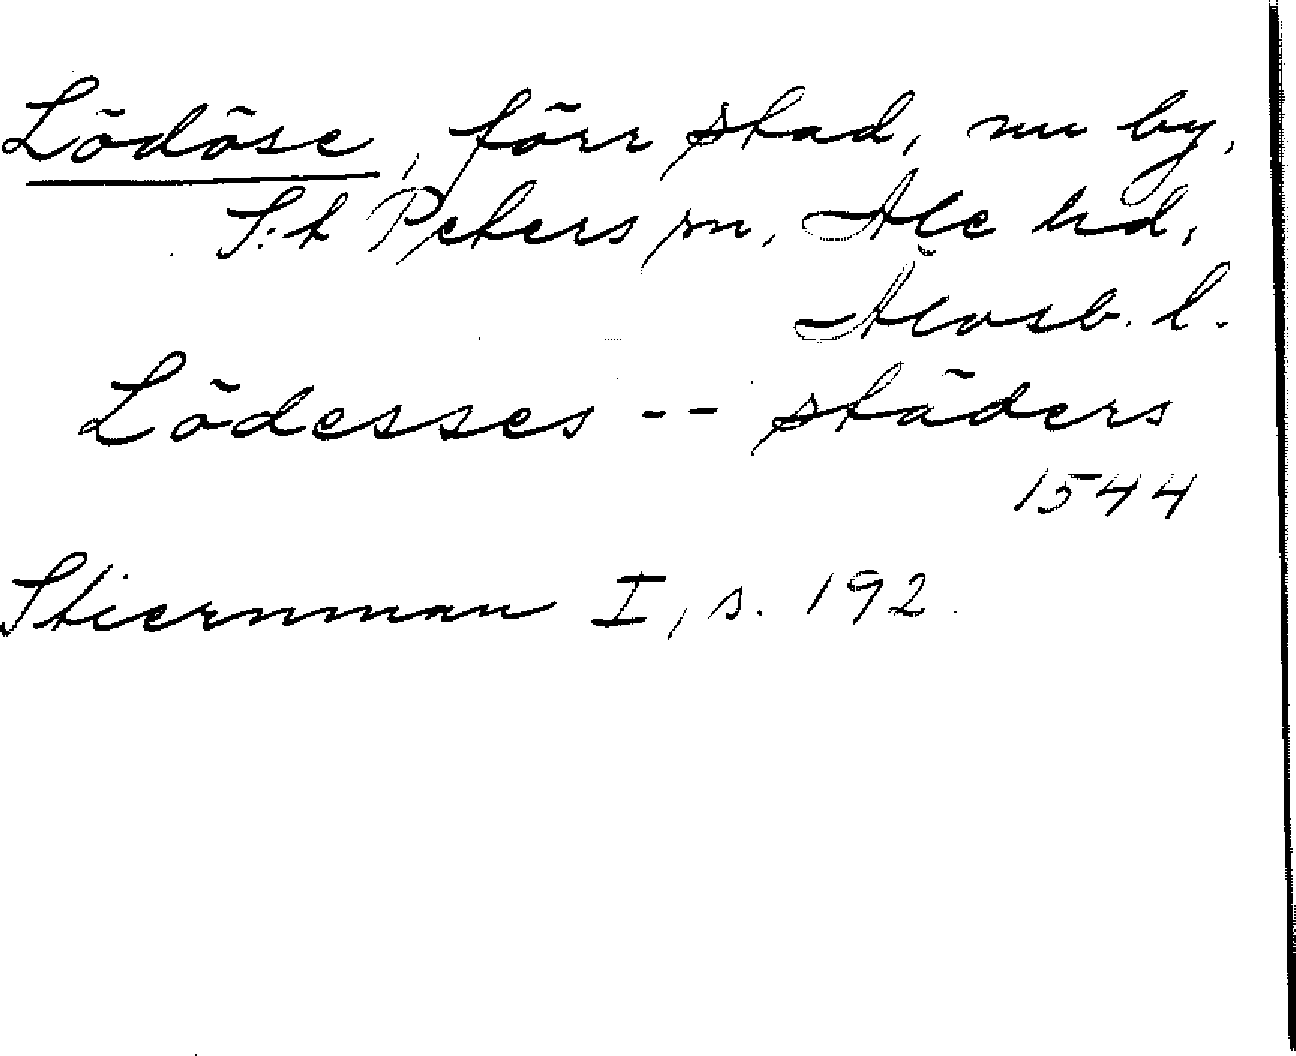 Lödöse, förr stad, nu by,
S:t Peters sn, Ale hd,
Älvsb. l.
Lödesses -- städers
1544
Stiernman I, s. 192.